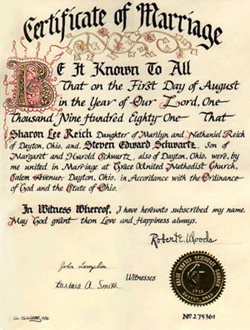 Certificate of Marriage
BE It Known To All
That on the First Day of August
in the Year of Our Lord, One
Thousand Nine Hundred Eighty One That
Sharon Lee Reich Daughter of Marilyn and Nathaniel Reich
of Dayton, Ohio, and Steven Edward Schwartz, Son of
Margaret and Harold Schwartz, also of Dayton, Ohio, were, by
me united in Marriage at Grace United Methodist Church,
Salem Avenue, Dayton, Ohio, in Accordance with the Ordinance
of God and the State of Ohio.
In Witness Whereof, I have hereunto subscribed my name.
May God grant them Love and Happiness always.
Robert E. Woods
John
Barbara A. Smith
Witnesses
Nº 275361